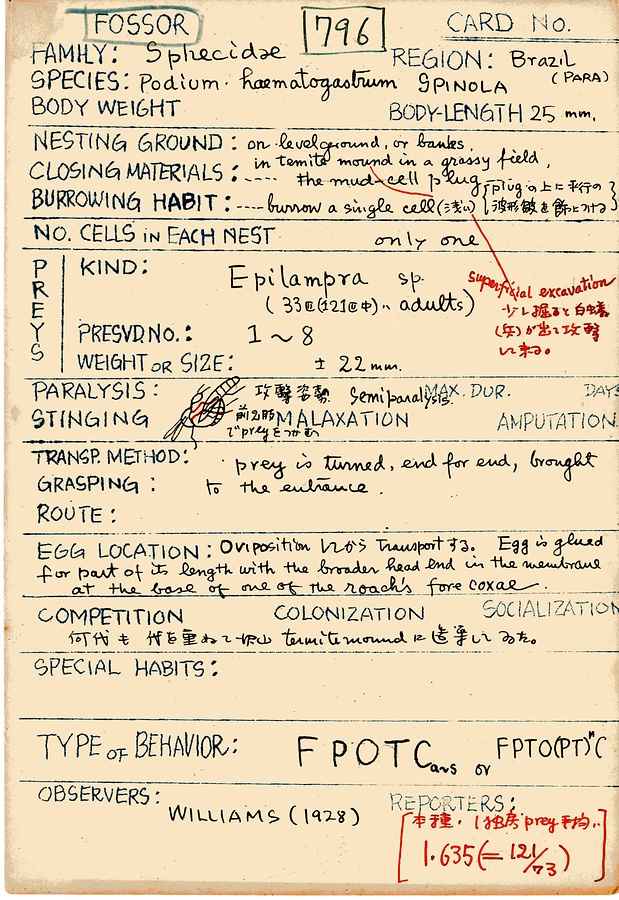 FOSSOR 796 CARD NO.
FAMILY: Sphecidae REGION: Brazil
(PARA)
SPECIES: Podium haematogastrum SPINOLA
BODY WEIGHT BODY-LENGTH 25 mm.
NESTING GROUND: on level ground, or banks,
in temite mound in a grassy field,
CLOSING MATERIALS: ---- the mud-cell plug
BURROWING HABIT: ---- burrow a single cell (浅い) {plugの上に平行の
波形皺を飾につける}
NO. CELLS in EACH NEST only one
superficial excavation
少し掘ると白蟻
(兵)が出て攻撃
して来る。
PREYS
KIND: Epilampra sp.
(33匹(121匹中).. adults)
PRESVD NO.: 1~8
WEIGHT or SIZE: ± 22 mm.
PARALYSIS: 攻撃姿勢 Semiparalysis. MAX. DUR. DAYS
STINGING 前2肢 MALAXATION AMPUTATION
でpreyをつかむ
TRANSP. METHOD: prey is turned, end for end, brought
GRASPING: to the entrance.
ROUTE:
EGG LOCATION: Oviposition してから Transportする. Egg is glued
for part of its length with the broader head end in the membrane
at the base of one of the roach's fore coxae.
COMPETITION COLONIZATION SOCIALIZATION
何代も 代を重ねて termite mound に造巣している。
SPECIAL HABITS:
TYPE of BEHAVIOR: FPOTCavs or FPTO(PT)ⁿC
OBSERVERS: WILLIAMS (1928) REPORTERS:
[本種. 1独房prey平均..
1.635 (= 121/73)]